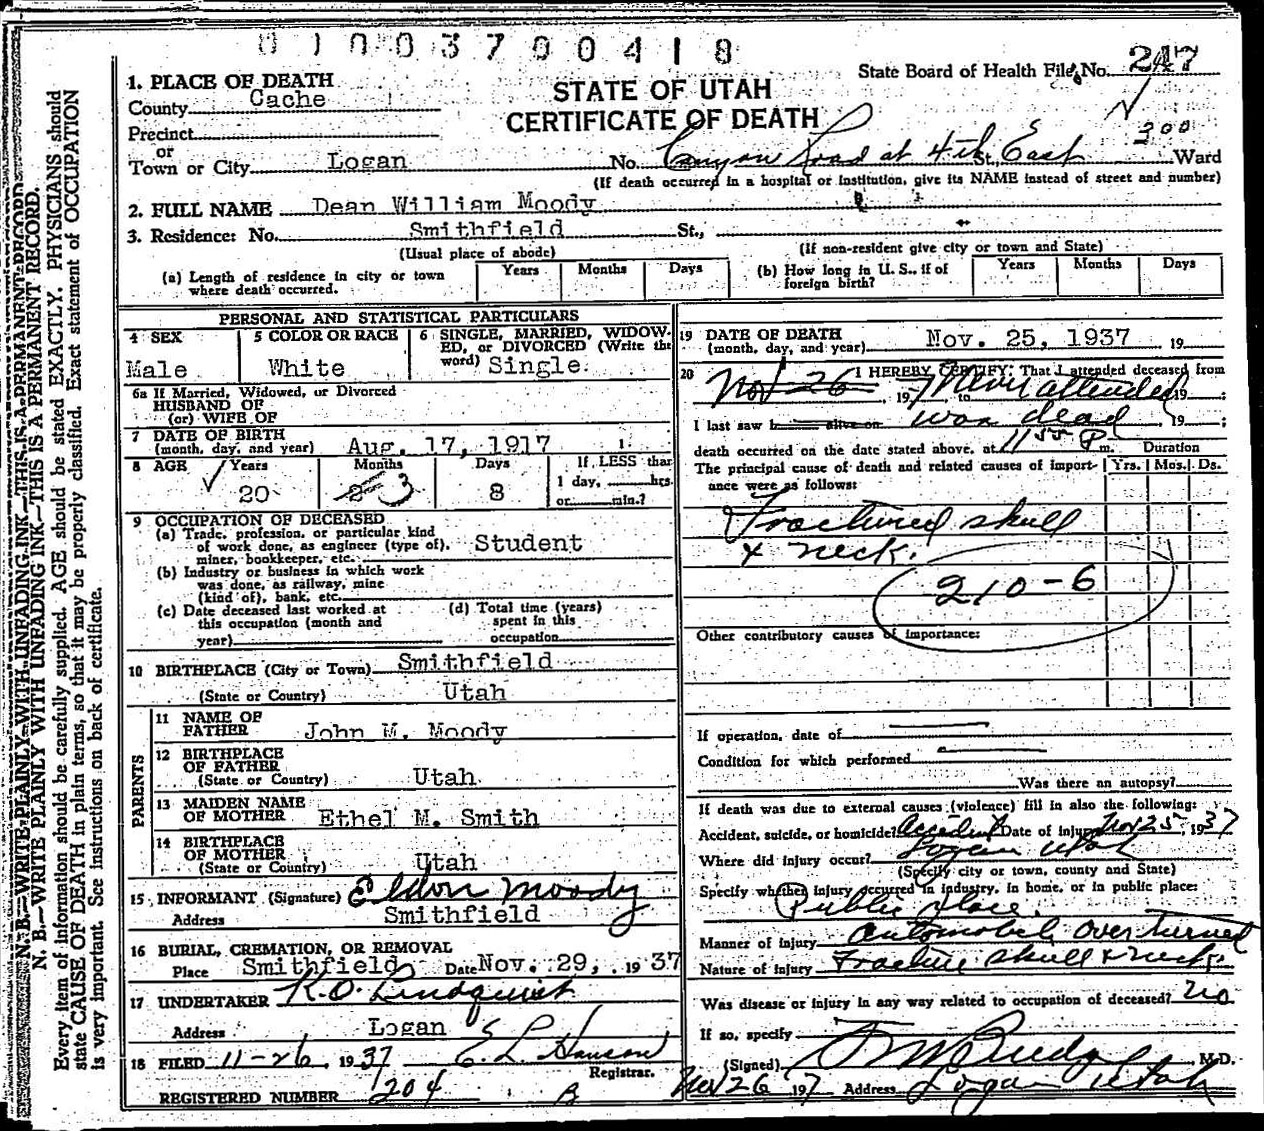 0100370041 8
State Board of Health File No. 247
1. PLACE OF DEATH
STATE OF UTAH
County Cache
CERTIFICATE OF DEATH
Precinct
or
Town or City Logan No. Canyon Road at 4th St., East 300 Ward
(If death occurred in a hospital or institution, give its NAME instead of street and number)
2. FULL NAME Dean William Moody
3. Residence: No. Smithfield St.,
(Usual place of abode) (If non-resident give city or town and State)
(a) Length of residence in city or town where death occurred. Years Months Days
(b) How long in U. S., if of foreign birth? Years Months Days
PERSONAL AND STATISTICAL PARTICULARS
4 SEX
Male
5 COLOR OR RACE
White
6 SINGLE, MARRIED, WIDOW-
ED, or DIVORCED (Write the
word) Single
6a If Married, Widowed, or Divorced
HUSBAND OF
(or) WIFE OF
7 DATE OF BIRTH
(month, day, and year) Aug. 17, 1917
8 AGE Years Months Days If LESS than
20 3 8 1 day, hrs.
or min.?
9 OCCUPATION OF DECEASED
(a) Trade, profession, or particular kind
of work done, as engineer (type of), Student
miner, bookkeeper, etc.
(b) Industry or business in which work
was done, as railway, mine
(kind of), bank, etc.
(c) Date deceased last worked at
this occupation (month and
year)
(d) Total time (years)
spent in this
occupation
10 BIRTHPLACE (City or Town) Smithfield
(State or Country) Utah
PARENTS
11 NAME OF
FATHER John M. Moody
12 BIRTHPLACE
OF FATHER
(State or Country) Utah
13 MAIDEN NAME
OF MOTHER Ethel M. Smith
14 BIRTHPLACE
OF MOTHER
(State or Country) Utah
15 INFORMANT (Signature) Eldon Moody
Address Smithfield
16 BURIAL, CREMATION, OR REMOVAL
Place Smithfield Date Nov. 29, 1937
17 UNDERTAKER K.O. Lindquist
Address Logan
18 FILED 11-26, 1937 E L Hanson
Registrar.
REGISTERED NUMBER 204
19 DATE OF DEATH
(month, day, and year) Nov. 25, 1937 19
20 I HEREBY CERTIFY, That I attended deceased from
Nov 26, 197, to Never attended 19 ;
I last saw h alive on was dead, 19 ;
death occurred on the date stated above, at 11 55 P m. Duration
The principal cause of death and related causes of import- Yrs. Mos. Ds.
ance were as follows:
Fractured skull
& neck.
210-6
Other contributory causes of importance:
If operation, date of
Condition for which performed
Was there an autopsy?
If death was due to external causes (violence) fill in also the following:
Accident, suicide, or homicide? Accident Date of injury Nov 25, 1937
Where did injury occur? Logan Utah
(Specify city or town, county and State)
Specify whether injury occurred in industry, in home, or in public place:
Public place.
Manner of injury Automobile overturned
Nature of injury Fracture skull & neck
Was disease or injury in any way related to occupation of deceased? no
If so, specify
(Signed) M.D.
Nov 26 197 Address Logan Utah
N. B.—WRITE PLAINLY WITH UNFADING INK—THIS IS A PERMANENT RECORD.
N. B.—WRITE PLAINLY WITH UNFADING INK—THIS IS A PERMANENT RECORD.
Every item of information should be carefully supplied. AGE should be stated EXACTLY. PHYSICIANS should
state CAUSE OF DEATH in plain terms, so that it may be properly classified. Exact statement of OCCUPATION
is very important. See instructions on back of certificate.